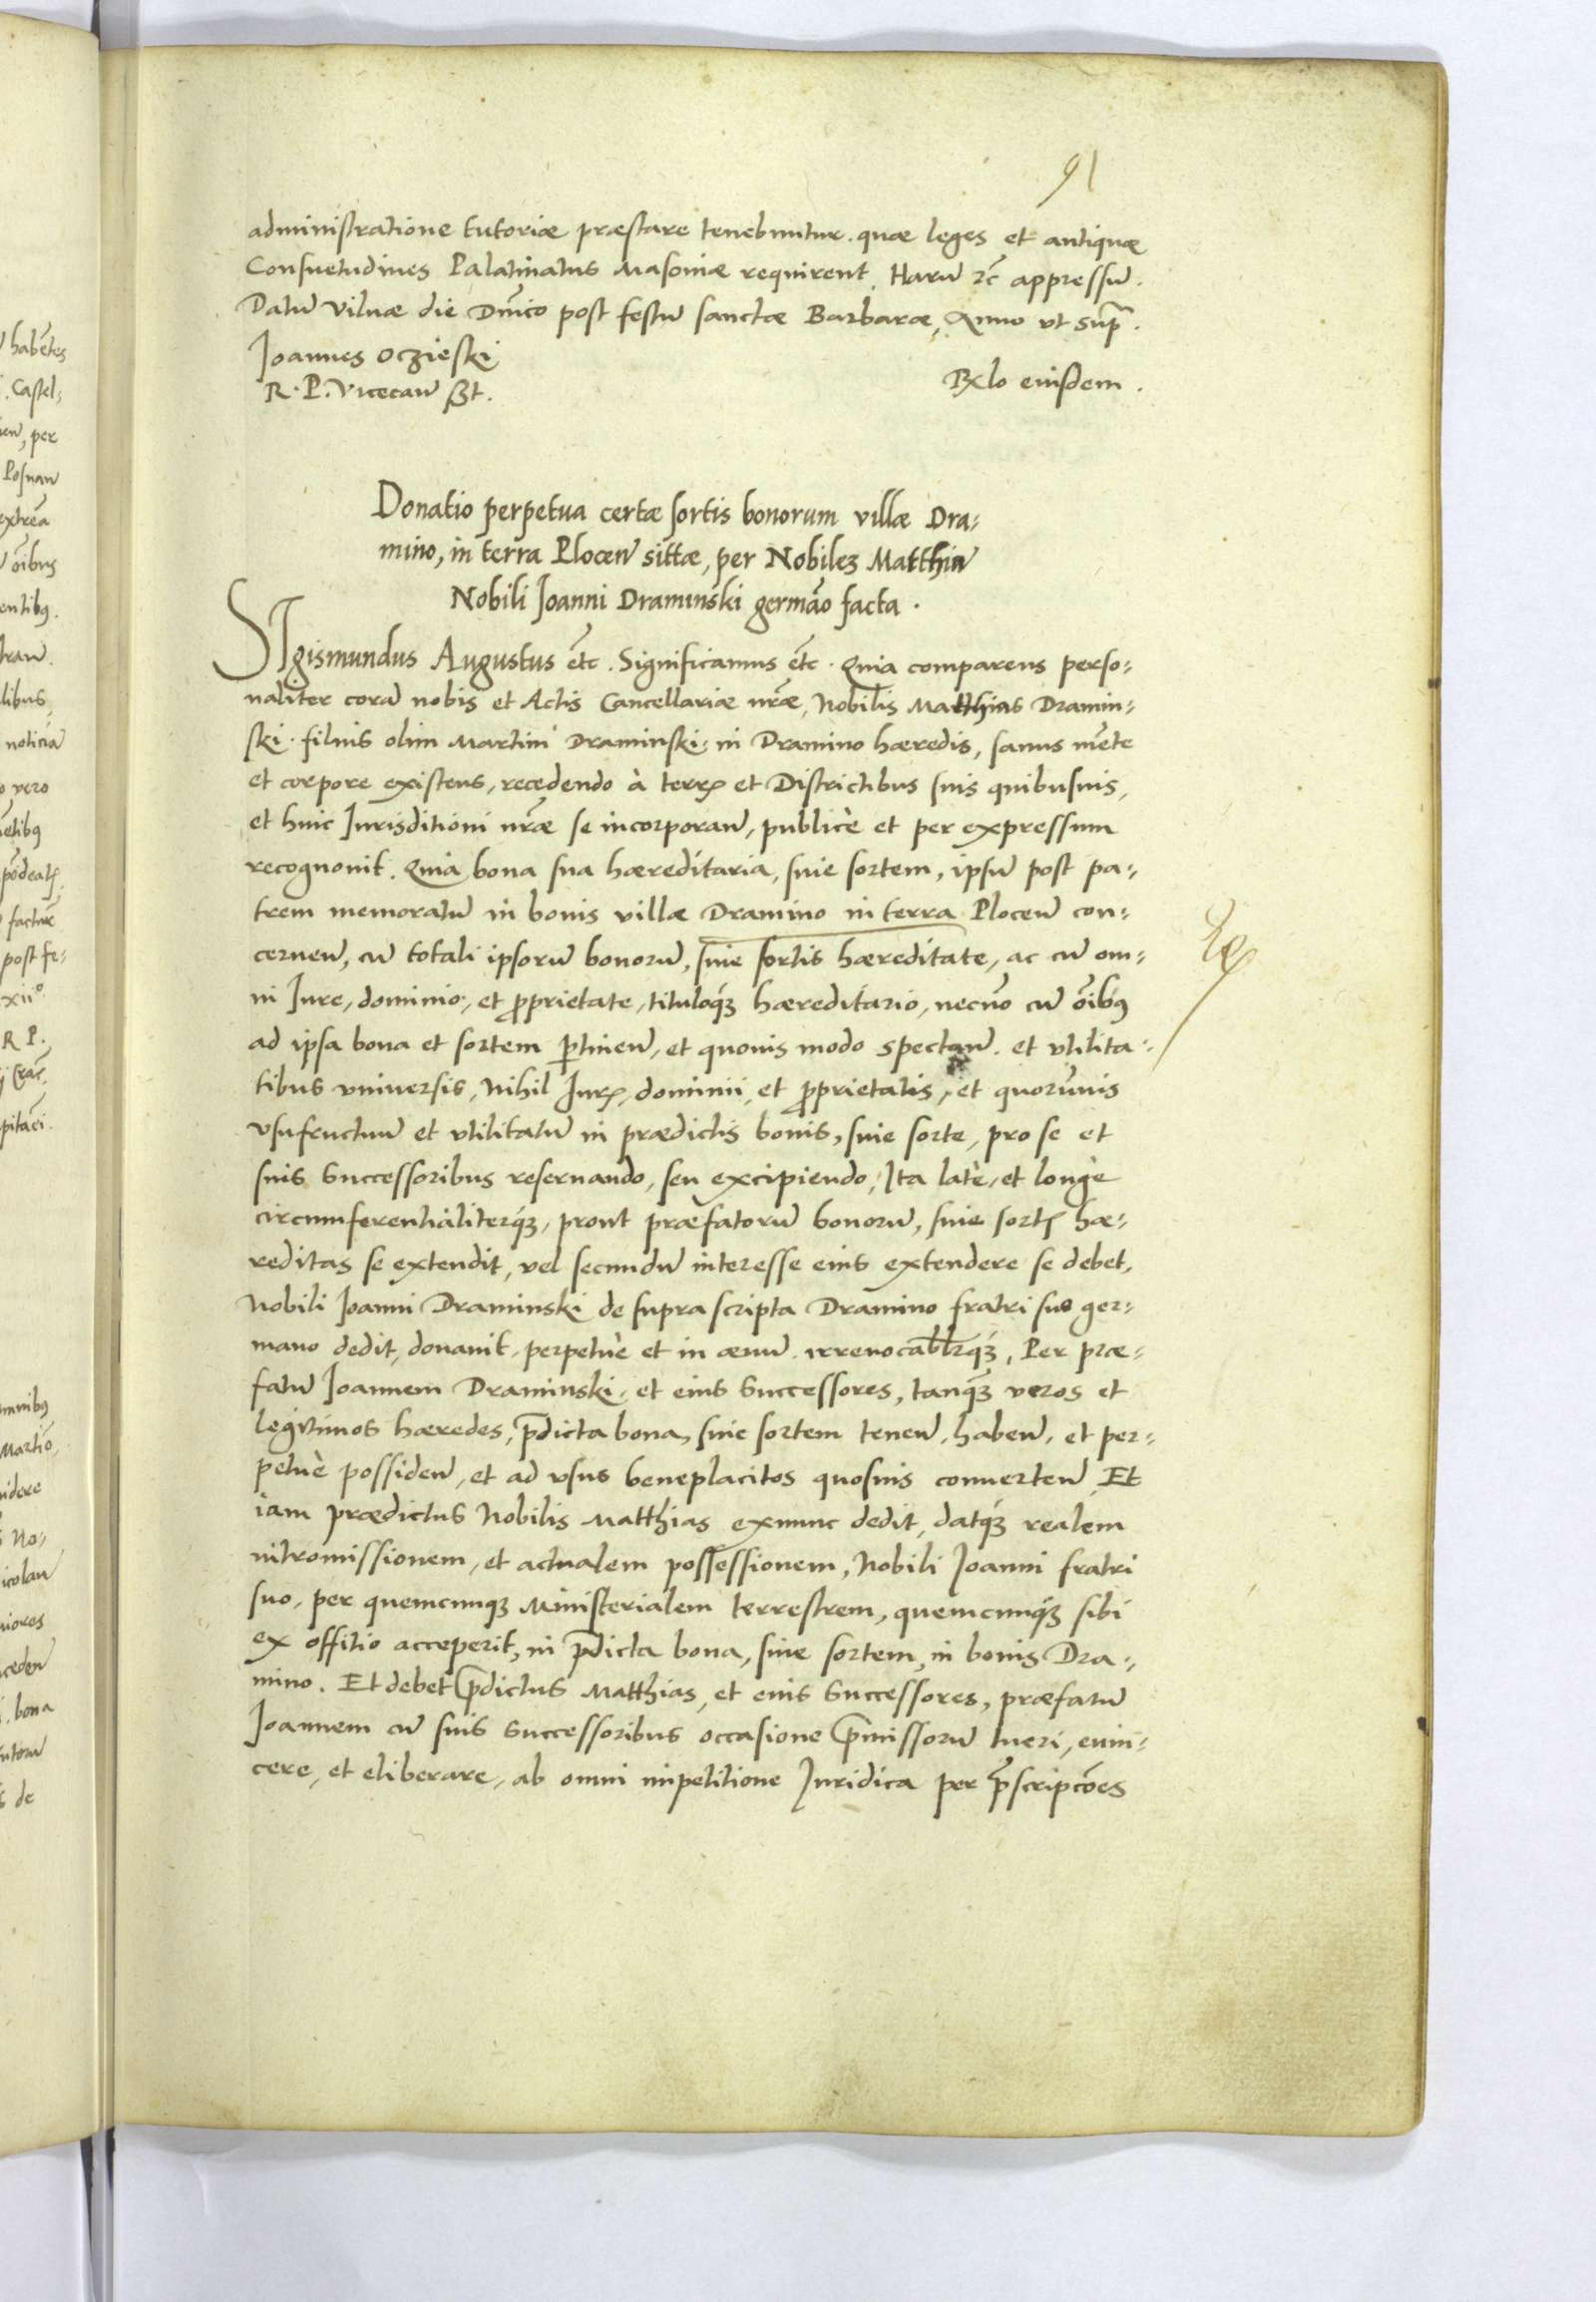 91
administratione tutoriæ præstare tenebuntur. quæ leges et antiquæ
Consuetudines Palatinatus Masoviæ requirent. Harū rc̄ appressū.
Datū Vilnæ die Dn̄ico post festū sanctæ Barbaræ, Anno ut sup̄.
Joannes Oczieski
R. P. Vicecan̄ ss̄t.
Rx̄lo eiusdem.
Donatio perpetua certæ sortis bonorum villæ Dra-
mino, in terra Plocen̄ sittæ, per Nobilem Matthiā
Nobili Joanni Draminski germāo facta.
SIgismundus Augustus et̄c. Significamus et̄c. Quia comparens perso-
naliter corā nobis et Actis Cancellariæ nr̄æ, Nobilis Matthias Dramin-
ski. filius olim Martini Draminski in Dramino hæredis, sanus mēte
et corpore existens, recedendo à terrꝭ et Districtibus suis quibusuis,
et huic Jurisditioni nr̄æ se incorporan̄, publicè et per expressum
recognouit. Quia bona sua hæreditaria, siue sortem, ipsū post pa-
trem memoratū in bonis villæ Dramino in terra Plocen̄ con-
cernen̄, cū totali ipsorū bonorū, siue sortis hæreditate, ac cū om-
ni Jure, dominio, et ꝓprietate, tituloq́ꝫ hæreditario, necnō cū oībꝰ
ad ipsa bona et sortem ꝑtinen̄, et quouis modo spectan̄. et utilita-
tibus uniuersis, Nihil Jurꝭ, dominii, et ꝓprietatis, et quorūuis
usufructuū et utilitatū in prædictis bonis, siue sorte, pro se et
suis Successoribus reseruando, seu excipiendo, Ita latè, et longè
circumferentialiterq́ꝫ, prout præfatorū bonorū, siue sortꝭ hæ-
reditas se extendit, vel secundū interesse eius extendere se debet,
Nobili Joanni Draminski de supra scripta Dramino fratri suo ger-
mano dedit, donauit, perpetuè et in æuū. irreuocabl̄rq́ꝫ, Per præ-
fatū Joannem Draminski, et eius Successores, tanq̄ꝫ veros et
legitimos hæredes, p̄dicta bona, siue sortem tenen̄, haben̄, et per-
petuè possiden̄, et ad usus beneplacitos quosuis conuerten̄. Et
iam prædictus Nobilis Matthias exnunc dedit, datq́ꝫ realem
intromissionem, et actualem possessionem, Nobili Joanni fratri
suo, per quemcunqꝫ Ministerialem terrestrem, quemcunq́ꝫ sibi
ex offitio acceperit, in p̄dicta bona, siue sortem, in bonis Dra-
mino. Et debet p̄dictus Matthias, et eius Successores, præfatū
Joannem cū suis Successoribus occasione p̄missorū tueri, euin-
cere, et eliberare, ab omni impetitione Juridica per p̄scripcōes